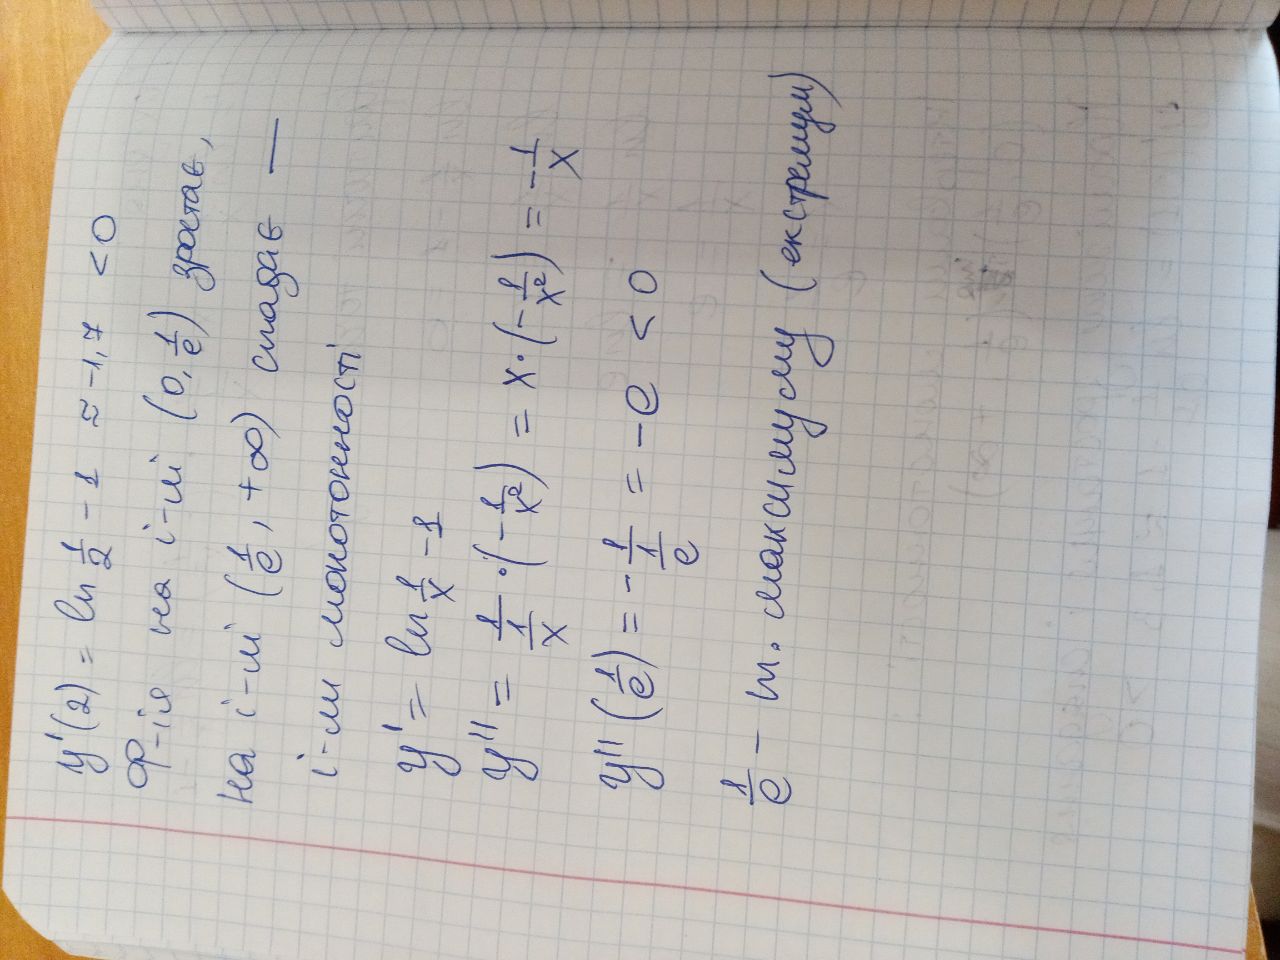 y'(2) = ln 1/2 - 1 ≈ -1,7 < 0
ф-ія на і-лі (0, 1/e) зростає,
на і-лі (1/e, +∞) спадає —
і-ли монотонності
y' = ln 1/x - 1
y'' = 1/(1/x) · (-1/x²) = x · (-1/x²) = -1/x
y''(1/e) = - 1/(1/e) = -e < 0
1/e - т. максимуму (екстремум)